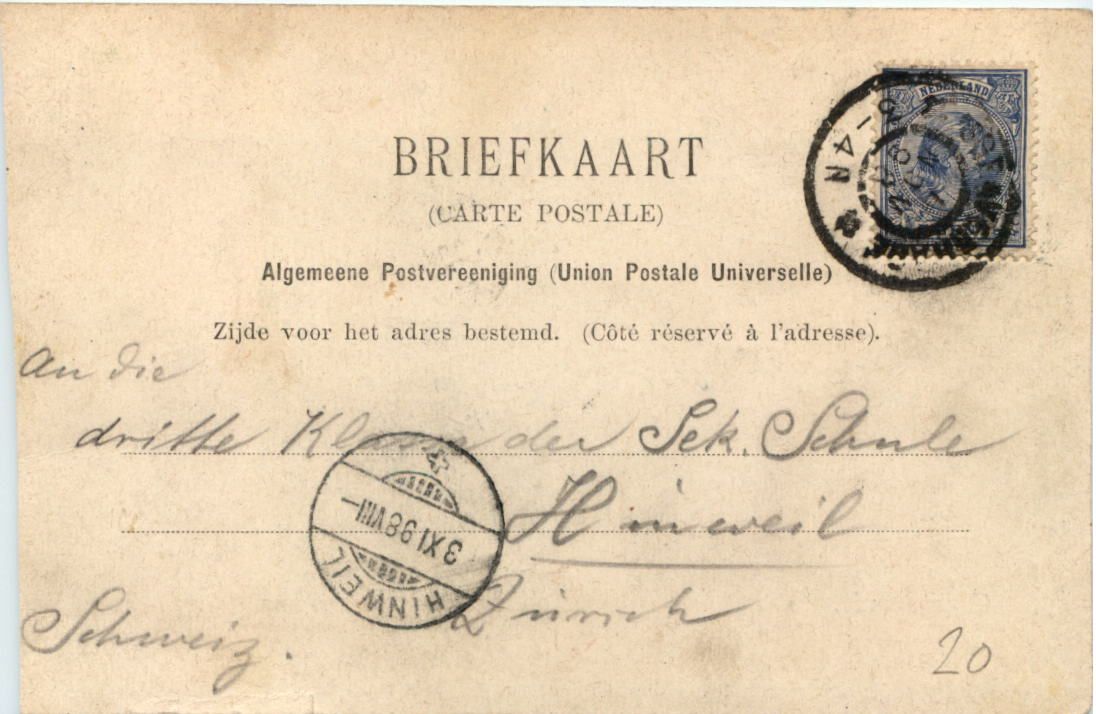 NEDERLAND
3-4N
BRIEFKAART
(CARTE POSTALE)
Algemeene Postvereeniging (Union Postale Universelle)
Zijde voor het adres bestemd. (Côté réservé à l'adresse).
An die
dritte Klasse der Sek. Schule
Hinweil
3 XI 98 VIII –
HINWEIL
Zürich
Schweiz.
20